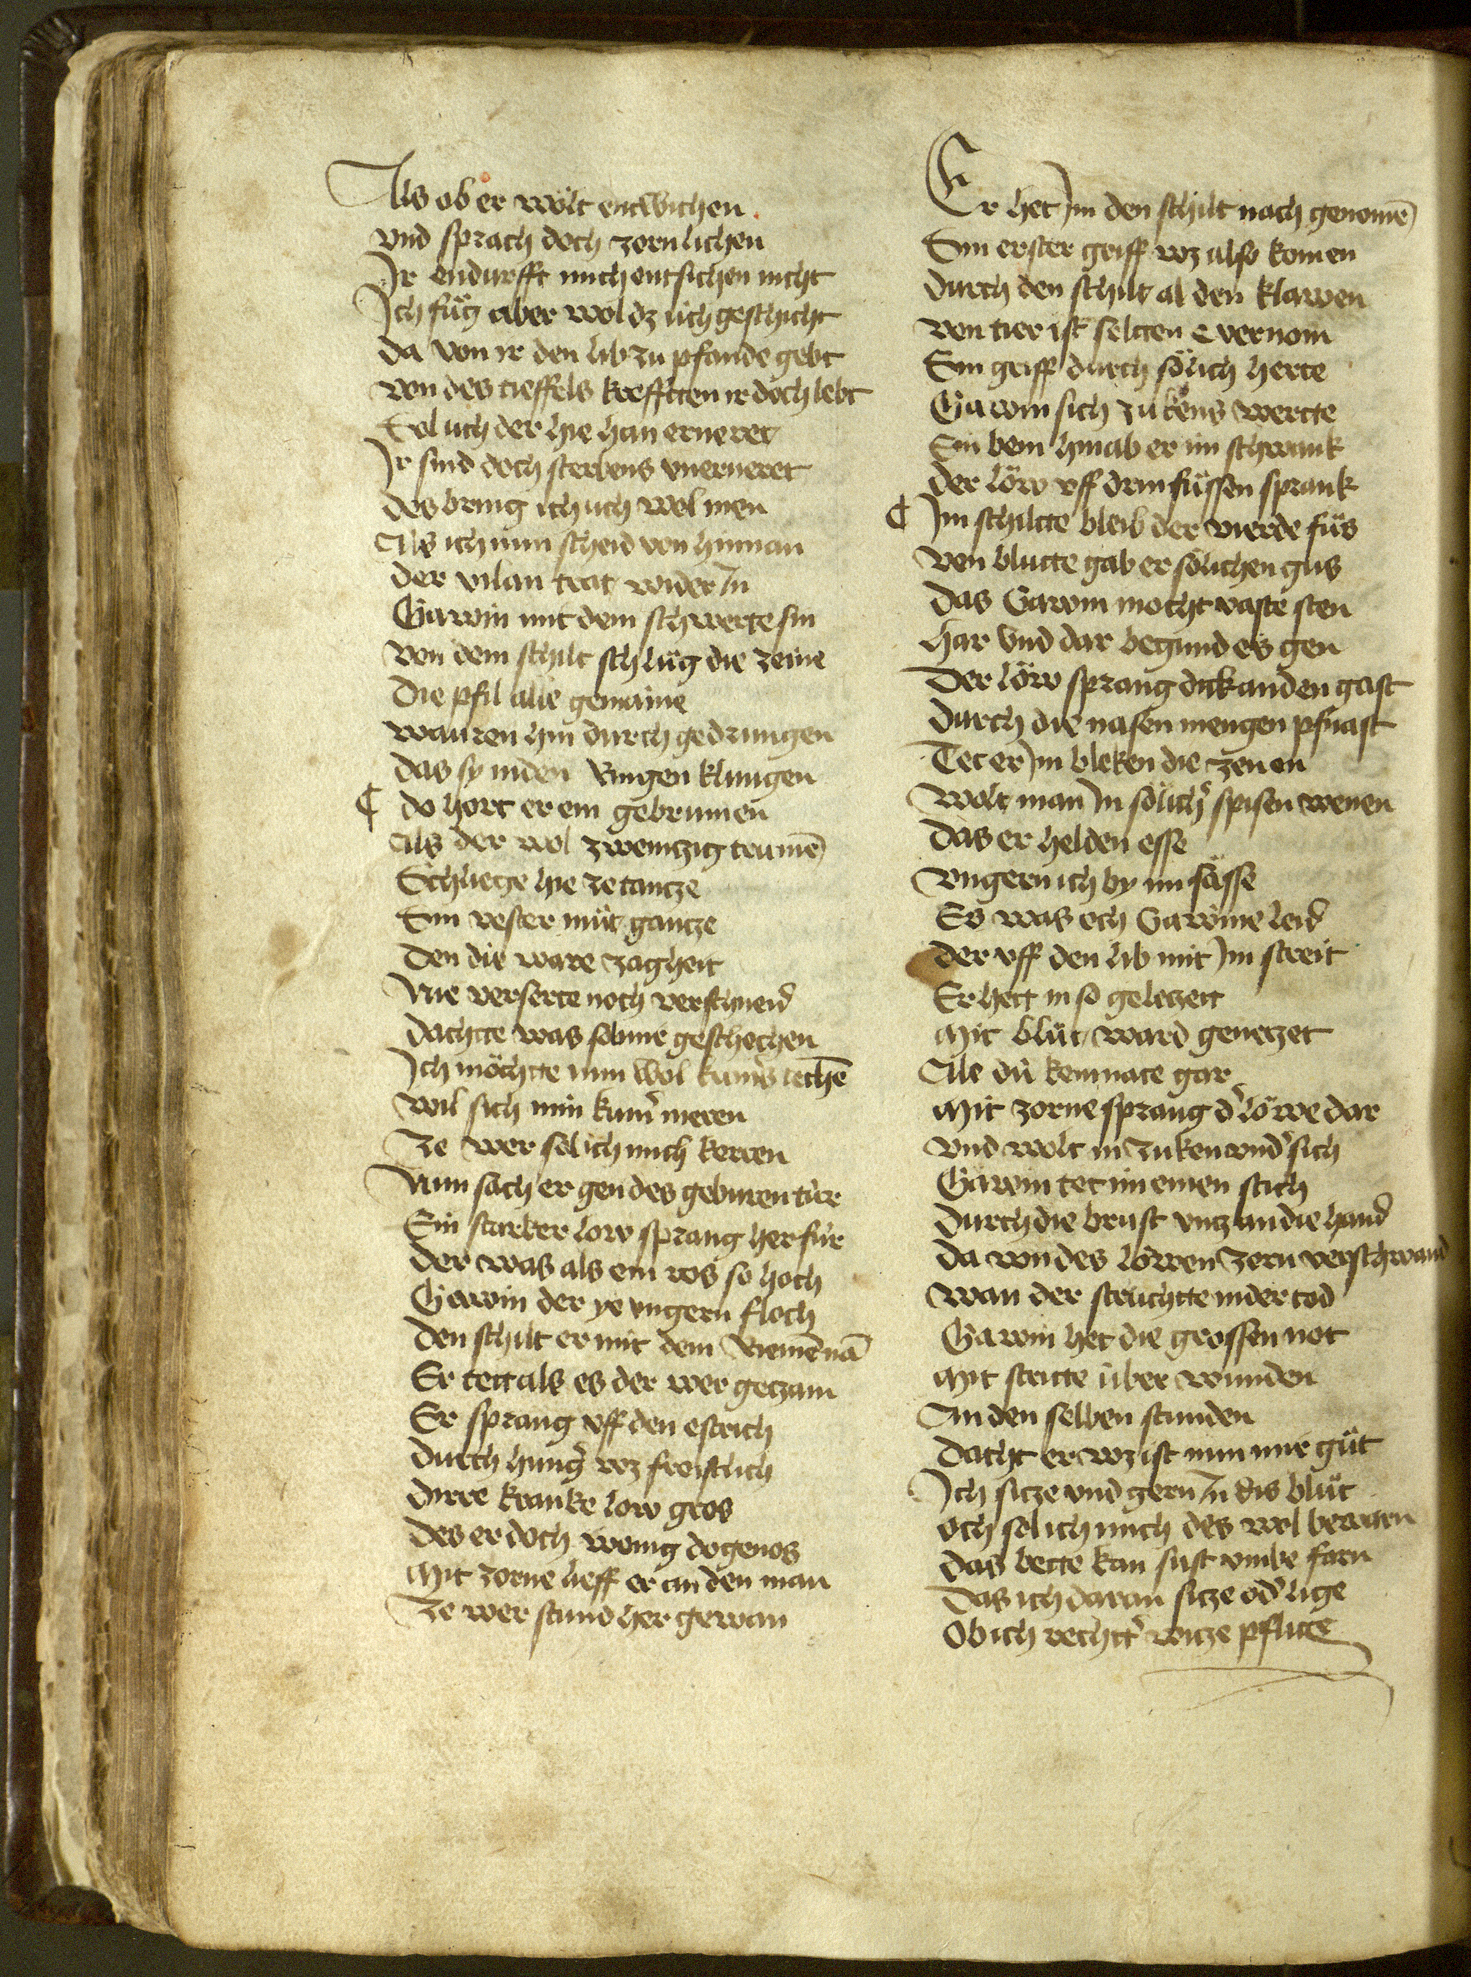 Als ob er wölt entwichen
vnd sprach doch zornlichen
Ir endurfft mich entsichen nicht
Ich füg aber wol dz üch geschicht
da von ir den lib zu pfande gebt
von des tieffels krefftten ir doch lebt
Sol uch der hie han erneret
Ir sind doch sterbens vnerneret
des bring ich uch wol inen
Als ich nun scheid von hinnan
der vilan trat wider in
Gawin mit dem schwerte sin
von dem schilt schlüg die zeine
Die pfil alle gemaine
wauren hin durch gedrungen
das sy inden Ringen klungen
¶ do hort er ein gebrumen
Als der wol zwenczig trumē
Schluege hie ze tancze
Sin vester müt gancze
den die ware zagheit
Nie verserte noch verschneid
dachtte was sol mir geschechen
Ich möchtte nun wol kumers iechē
wil sich min kumer meren
Ze wer sol ich mich kerren
Nun sach er gen des geburen tür
Ein starker low sprang herfür
der was als ein ros so hoch
Gawin der ye vngern floch
den schilt er mit dem Riemē nā
Er tett als es der wer geczam
Er sprang vff den estrich
durch hunger wz freistlich
dirre kranke low gros
des er doch wenig do genos
Mit zorne lieff er an den man
Ze wer stund her gewan
Er het im den schilt nach genomē
Sin erster griff wz also komen
durch den schilt al den klawen
von tier ist seltten e vernom
Sin griff durch sölich herte
Gawin sich zukens wertte
Ein bein hinab er im schwank
der löw vff drin füssen sprank
¶ Im schiltte bleib der vierde füs
von blutte gab er sölichen gus
das Gawin mocht vaste sten
har vnd dar begund es gen
Der löw sprang dik an den gast
durch die nasen mengen pfnast
Tet er im bleken die zenen
wolt man in sölicher spisen wenen
das er helden esse
vngern ich by im sässe
Es was och Gawine leid
der vff den lib mit im streit
Er hett in so geleczett
Mit blüt ward geneczet
Alle dü kemnate gar
Mit zorne sprang der löwe dar
vnd wolt in zuken vnder sich
Gawin tet im einen stich
durch die brust vncz an die hand
da von des löwen zorn verschwand
wan der struchtte nider tod
Gawin het die grossen not
Mit stritte über wunden
An den selben stunden
dacht er wz ist nun mir güt
Ich sicze vngern in dis blüt
och sol ich mich des wol bewarn
das bette kan sust vmbe farn
das ich daran sicze oder lige
Ob ich rechtter wicze pflige